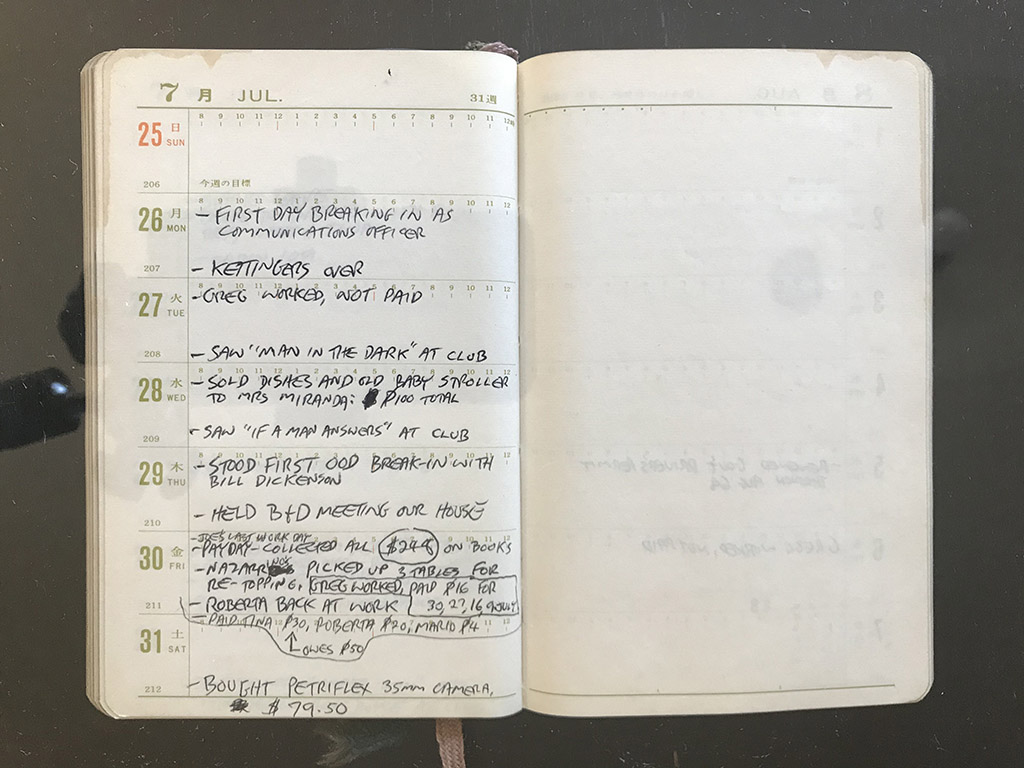 7 月 JUL. 31週
8 9 10 11 12 1 2 3 4 5 6 7 8 9 10 11 12
25 日 SUN
206 今週の目標
8 9 10 11 12 1 2 3 4 5 6 7 8 9 10 11 12
26 月 MON
- FIRST DAY BREAKING IN AS
COMMUNICATIONS OFFICER
207
- KETTINGERS OVER
27 火 TUE
- GREG WORKED, NOT PAID
208
- SAW "MAN IN THE DARK" AT CLUB
28 水 WED
- SOLD DISHES AND OLD BABY STROLLER
TO MRS MIRANDA: ₱100 TOTAL
209
- SAW "IF A MAN ANSWERS" AT CLUB
29 木 THU
- STOOD FIRST OOD BREAK-IN WITH
BILL DICKENSON
210
- HELD B+D MEETING OUR HOUSE
30 金 FRI
- JOE'S LAST WORK DAY
- PAYDAY - COLLECTED ALL $248 ON BOOKS
- PICKED UP 3 TABLES FOR
RE-TOPPING, GREG WORKED, PAID ₱16 FOR
30, 27, 16, 9 JULY
211
- ROBERTA BACK AT WORK
- PAID TINA ₱30, ROBERTA ₱20, MARIO ₱4
OWES ₱50
31 土 SAT
212
- BOUGHT PETRIFLEX 35MM CAMERA,
$79.50